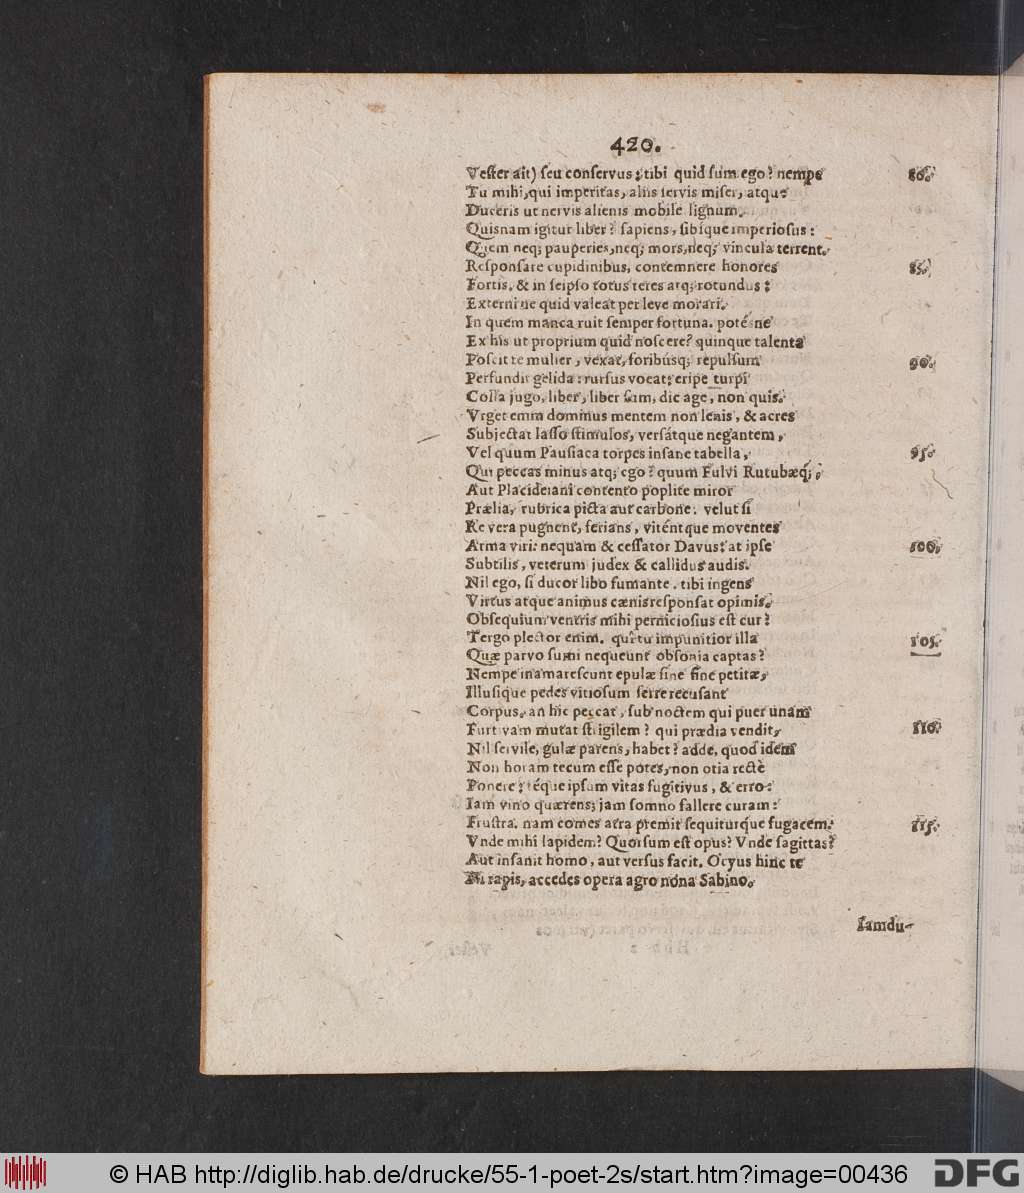 420.
Vester ait) seu conservus: tibi quid sum ego? nempe 80.
Tu mihi, qui imperitas, aliis servis miser, atque
Duceris ut nervis alienis mobile lignum.
Quisnam igitur liber? sapiens, sibique imperiosus:
Quem neq; pauperies, neq; mors, neq; vincula terrent.
Responsare cupidinibus, contemnere honores 85.
Fortis. & in seipso totus teres atq; rotundus:
Externi ne quid valeat per leve morari.
In quem manca ruit semper fortuna. potésne
Ex his ut proprium quid noscere? quinque talenta
Poscit te mulier, vexat, foribúsq; repulsum 90.
Perfundit gelida: rursus vocat: eripe turpi
Colla jugo, liber, liber sum, dic age, non quis.
Vrget enim dominus mentem non lenis, & acres
Subjectat lasso stimulos, versátque negantem,
Vel quum Pausiaca torpes insane tabella, 95.
Qui peccas minus atq; ego? quum Fulvi Rutubæq́;,
Aut Placideiani contento poplite miror
Prælia, rubrica picta aut carbone. velut si
Re vera pugnent, ferians, vitént que moventes
Arma viri: nequam & cessator Davus: at ipse 100.
Subtilis, veterum judex & callidus audis.
Nil ego, si ducor libo fumante. tibi ingens
Virtus atque animus cænis responsat opimis.
Obsequium ventris mihi perniciosius est cur?
Tergo plector enim. quî tu impunitior illa 105.
Quæ parvo sumi nequeunt obsonia captas?
Nempe inamarescunt epulæ sine fine petitæ,
Illusique pedes vitiosum ferre recusant
Corpus. an hic peccat, sub noctem qui puer unam
Furtivam mutat strigilem? qui prædia vendit, 110.
Nil servile, gulæ parens, habet? adde, quod idem
Non horam tecum esse potes, non otia rectè
Ponere: téque ipsum vitas fugitivus, & erro:
Iam vino quærens; jam somno fallere curam:
Frustra. nam comes atra premit sequiturque fugacem. 115.
Vnde mihi lapidem? Quorsum est opus? Vnde sagittas?
Aut insanit homo, aut versus facit. Ocyus hinc te
Ni rapis, accedes opera agro nona Sabino.
Iamdu-
© HAB http://diglib.hab.de/drucke/55-1-poet-2s/start.htm?image=00436 DFG